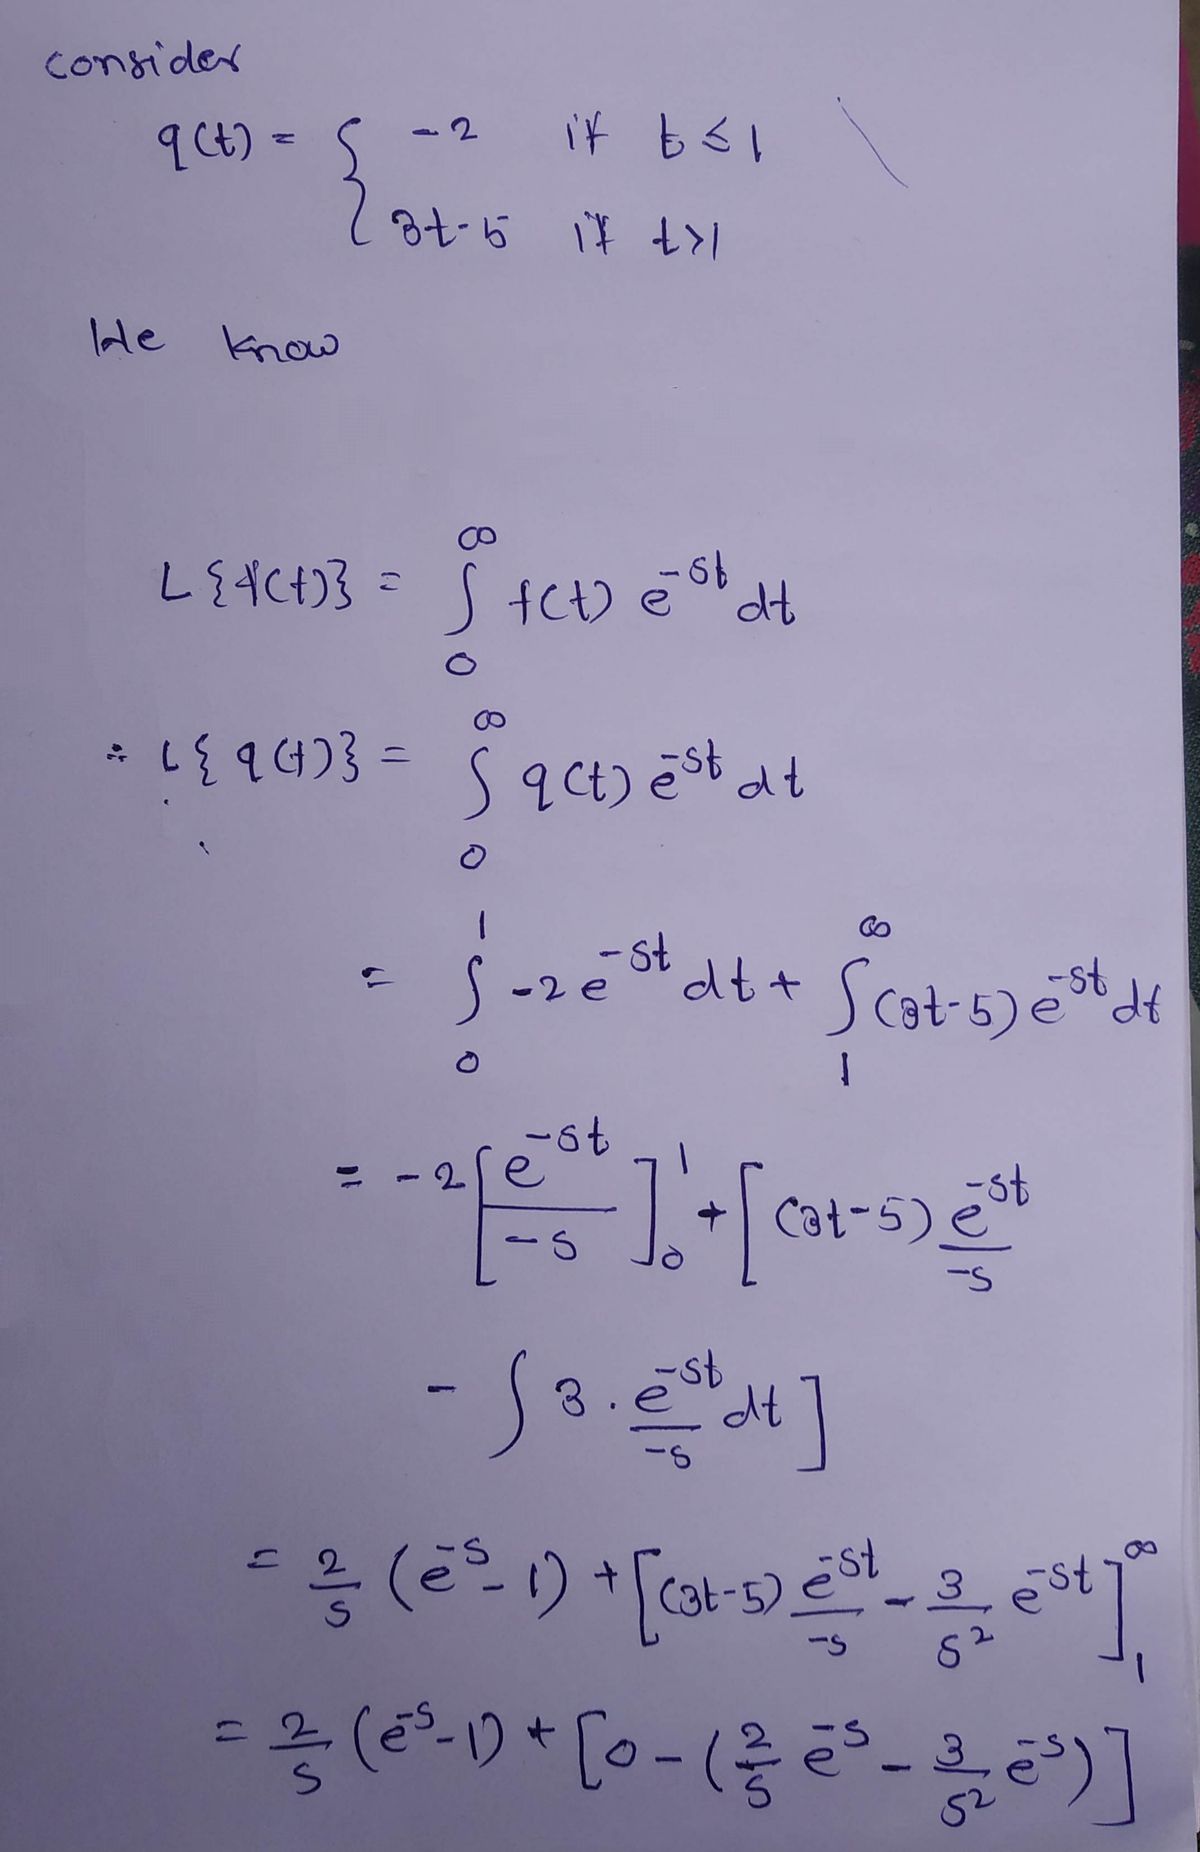 consider
q(t) = { -2 if t ≤ 1
3t-5 if t>1
We know
L{f(t)} = ∫₀^∞ f(t) e^{-st} dt
∴ L{q(t)} = ∫₀^∞ q(t) e^{-st} dt
= ∫₀^1 -2e^{-st} dt + ∫₁^∞ (3t-5) e^{-st} dt
= -2[e^{-st}/-s]₀^1 + [(3t-5) e^{-st}/-s
- ∫ 3 . e^{-st}/-s dt]
= 2/s (e^{-s} - 1) + [(3t-5) e^{-st}/-s - 3/s² e^{-st}]₁^∞
= 2/s (e^{-s} - 1) + [0 - (2/s e^{-s} - 3/s² e^{-s})]